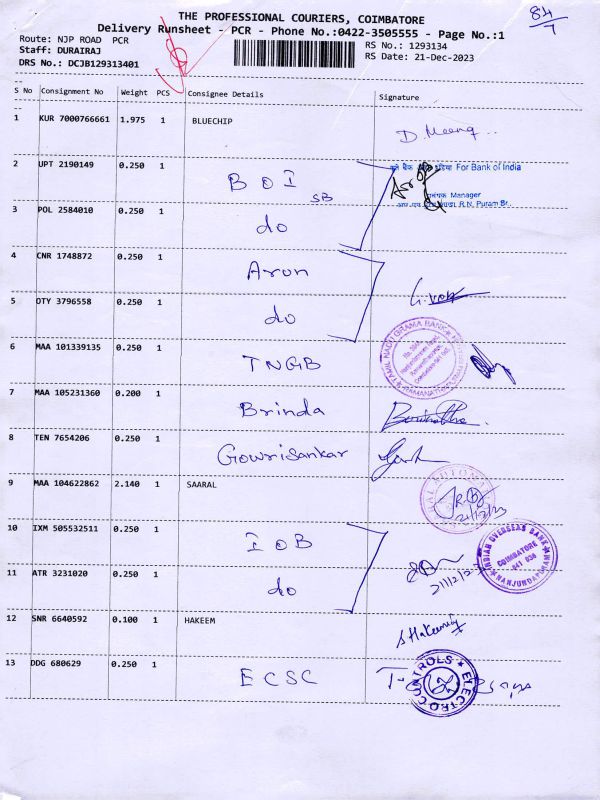 THE PROFESSIONAL COURIERS, COIMBATORE
84/7
Delivery Runsheet - PCR - Phone No.:0422-3505555 - Page No.:1
Route: NJP ROAD PCR
Staff: DURAIRAJ
DRS No.: DCJB129313401
RS No.: 1293134
RS Date: 21-Dec-2023
S No Consignment No Weight PCS Consignee Details Signature
1 KUR 7000766661 1.975 1 BLUECHIP D. Meena
2 UPT 2190149 0.250 1 BOI SB
For Bank of India
Manager
R.N. Puram Br.
3 POL 2584010 0.250 1 do
4 CNR 1748872 0.250 1 Arun
5 OTY 3796558 0.250 1 do
6 MAA 101339135 0.250 1 TNGB
TAMIL NADU GRAMA BANK
7 MAA 105231360 0.200 1 Brinda
8 TEN 7654206 0.250 1 Gowrisankar
9 MAA 104622862 2.140 1 SAARAL
21/12/23
10 IXM 505532511 0.250 1 IOB
INDIAN OVERSEAS BANK
COIMBATORE
641 036
NANJUNDAPURAM
11 ATR 3231020 0.250 1 do
21/12/23
12 SNR 6640592 0.100 1 HAKEEM
13 DDG 680629 0.250 1 ECSC
ELECTRO CONTROLS